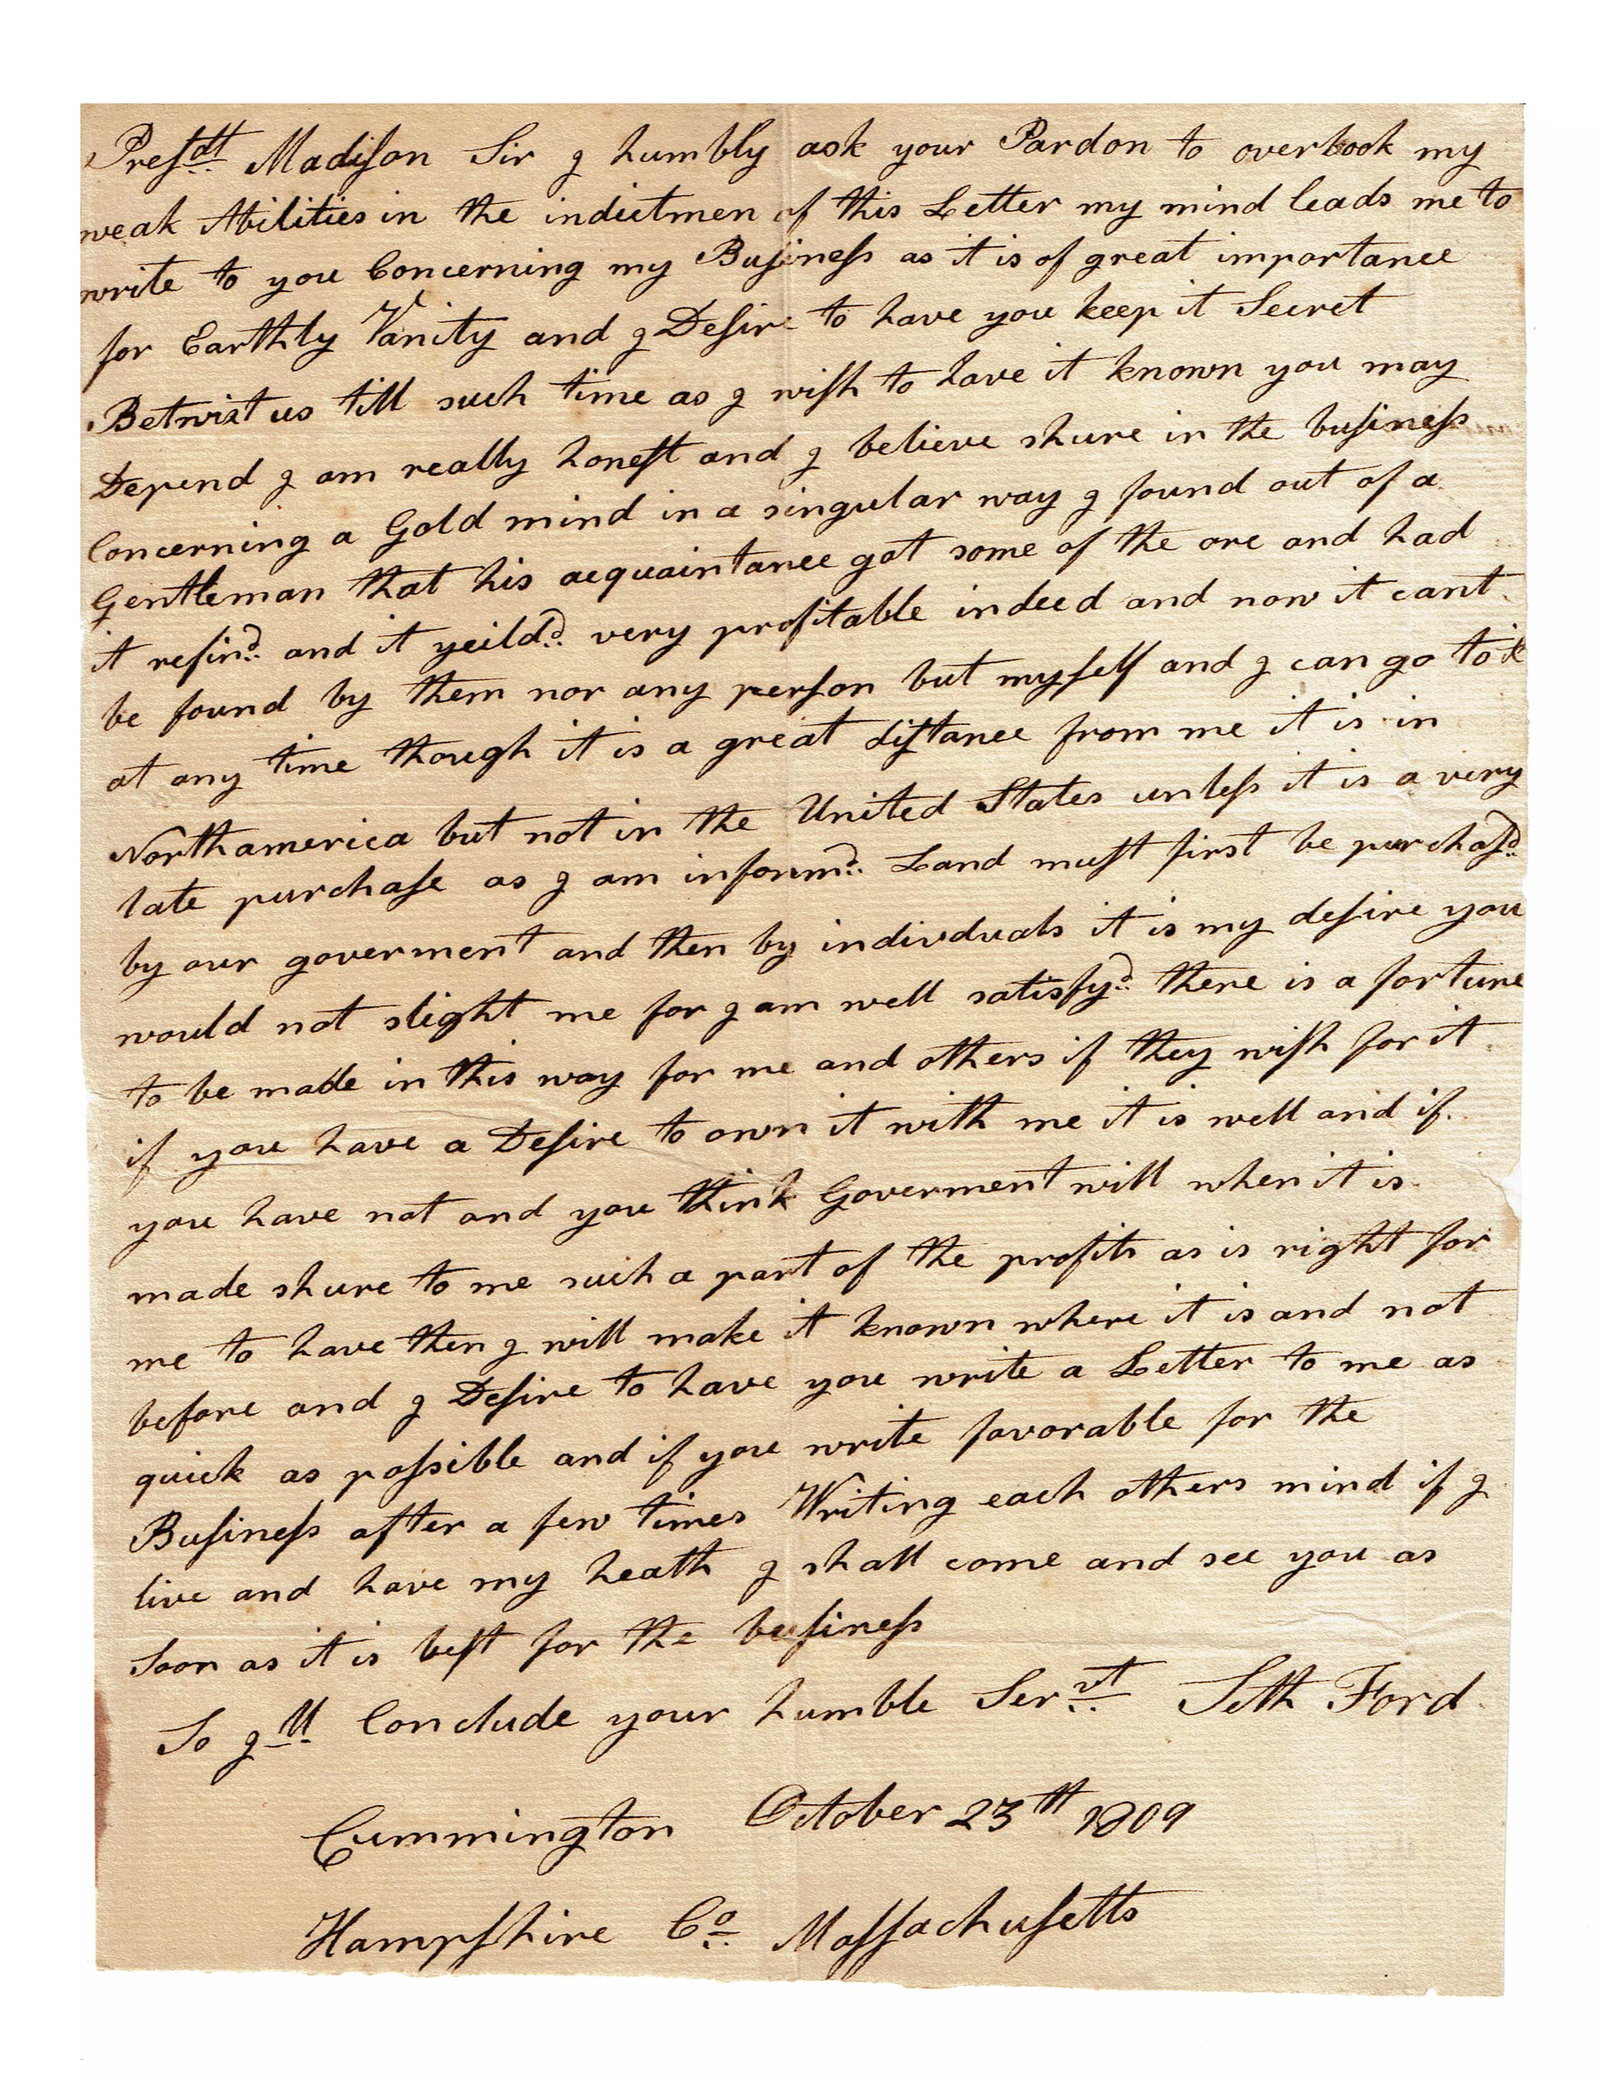 Presdtt. Madison Sir I humbly ask your Pardon to overlook my
weak Abilities in the indietmen of this Letter my mind leads me to
write to you Concerning my Business as it is of great importance
for Earthly Vanity and I Desire to have you keep it Secret
Betwixt us till such time as I wish to have it known you may
Depend I am really honest and I believe shure in the business
Concerning a Gold mind in a singular way I found out of a
Gentleman that his acquaintance got some of the ore and had
it refind. and it yeildd. very profitable indeed and now it cant
be found by them nor any person but myself and I can go to it
at any time though it is a great distance from me it is in
Northamerica but not in the United States unless it is a very
late purchase as I am informd. Land must first be purchasd.
by our goverment and then by indivduals it is my desire you
would not slight me for I am well satisfyd. there is a fortune
to be made in this way for me and others if they wish for it
if you have a Desire to own it with me it is well and if
you have not and you think Goverment will when it is
made shure to me such a part of the profits as is right for
me to have then I will make it known where it is and not
before and I Desire to have you write a Letter to me as
quick as possible and if you write favorable for the
Business after a few times Writing each others mind if I
live and have my heath I shall come and see you as
Soon as it is best for the business
So I ll Conclude your humble Servt. Seth Ford
Cummington October 23th 1809
Hampshire Co. Massachusetts